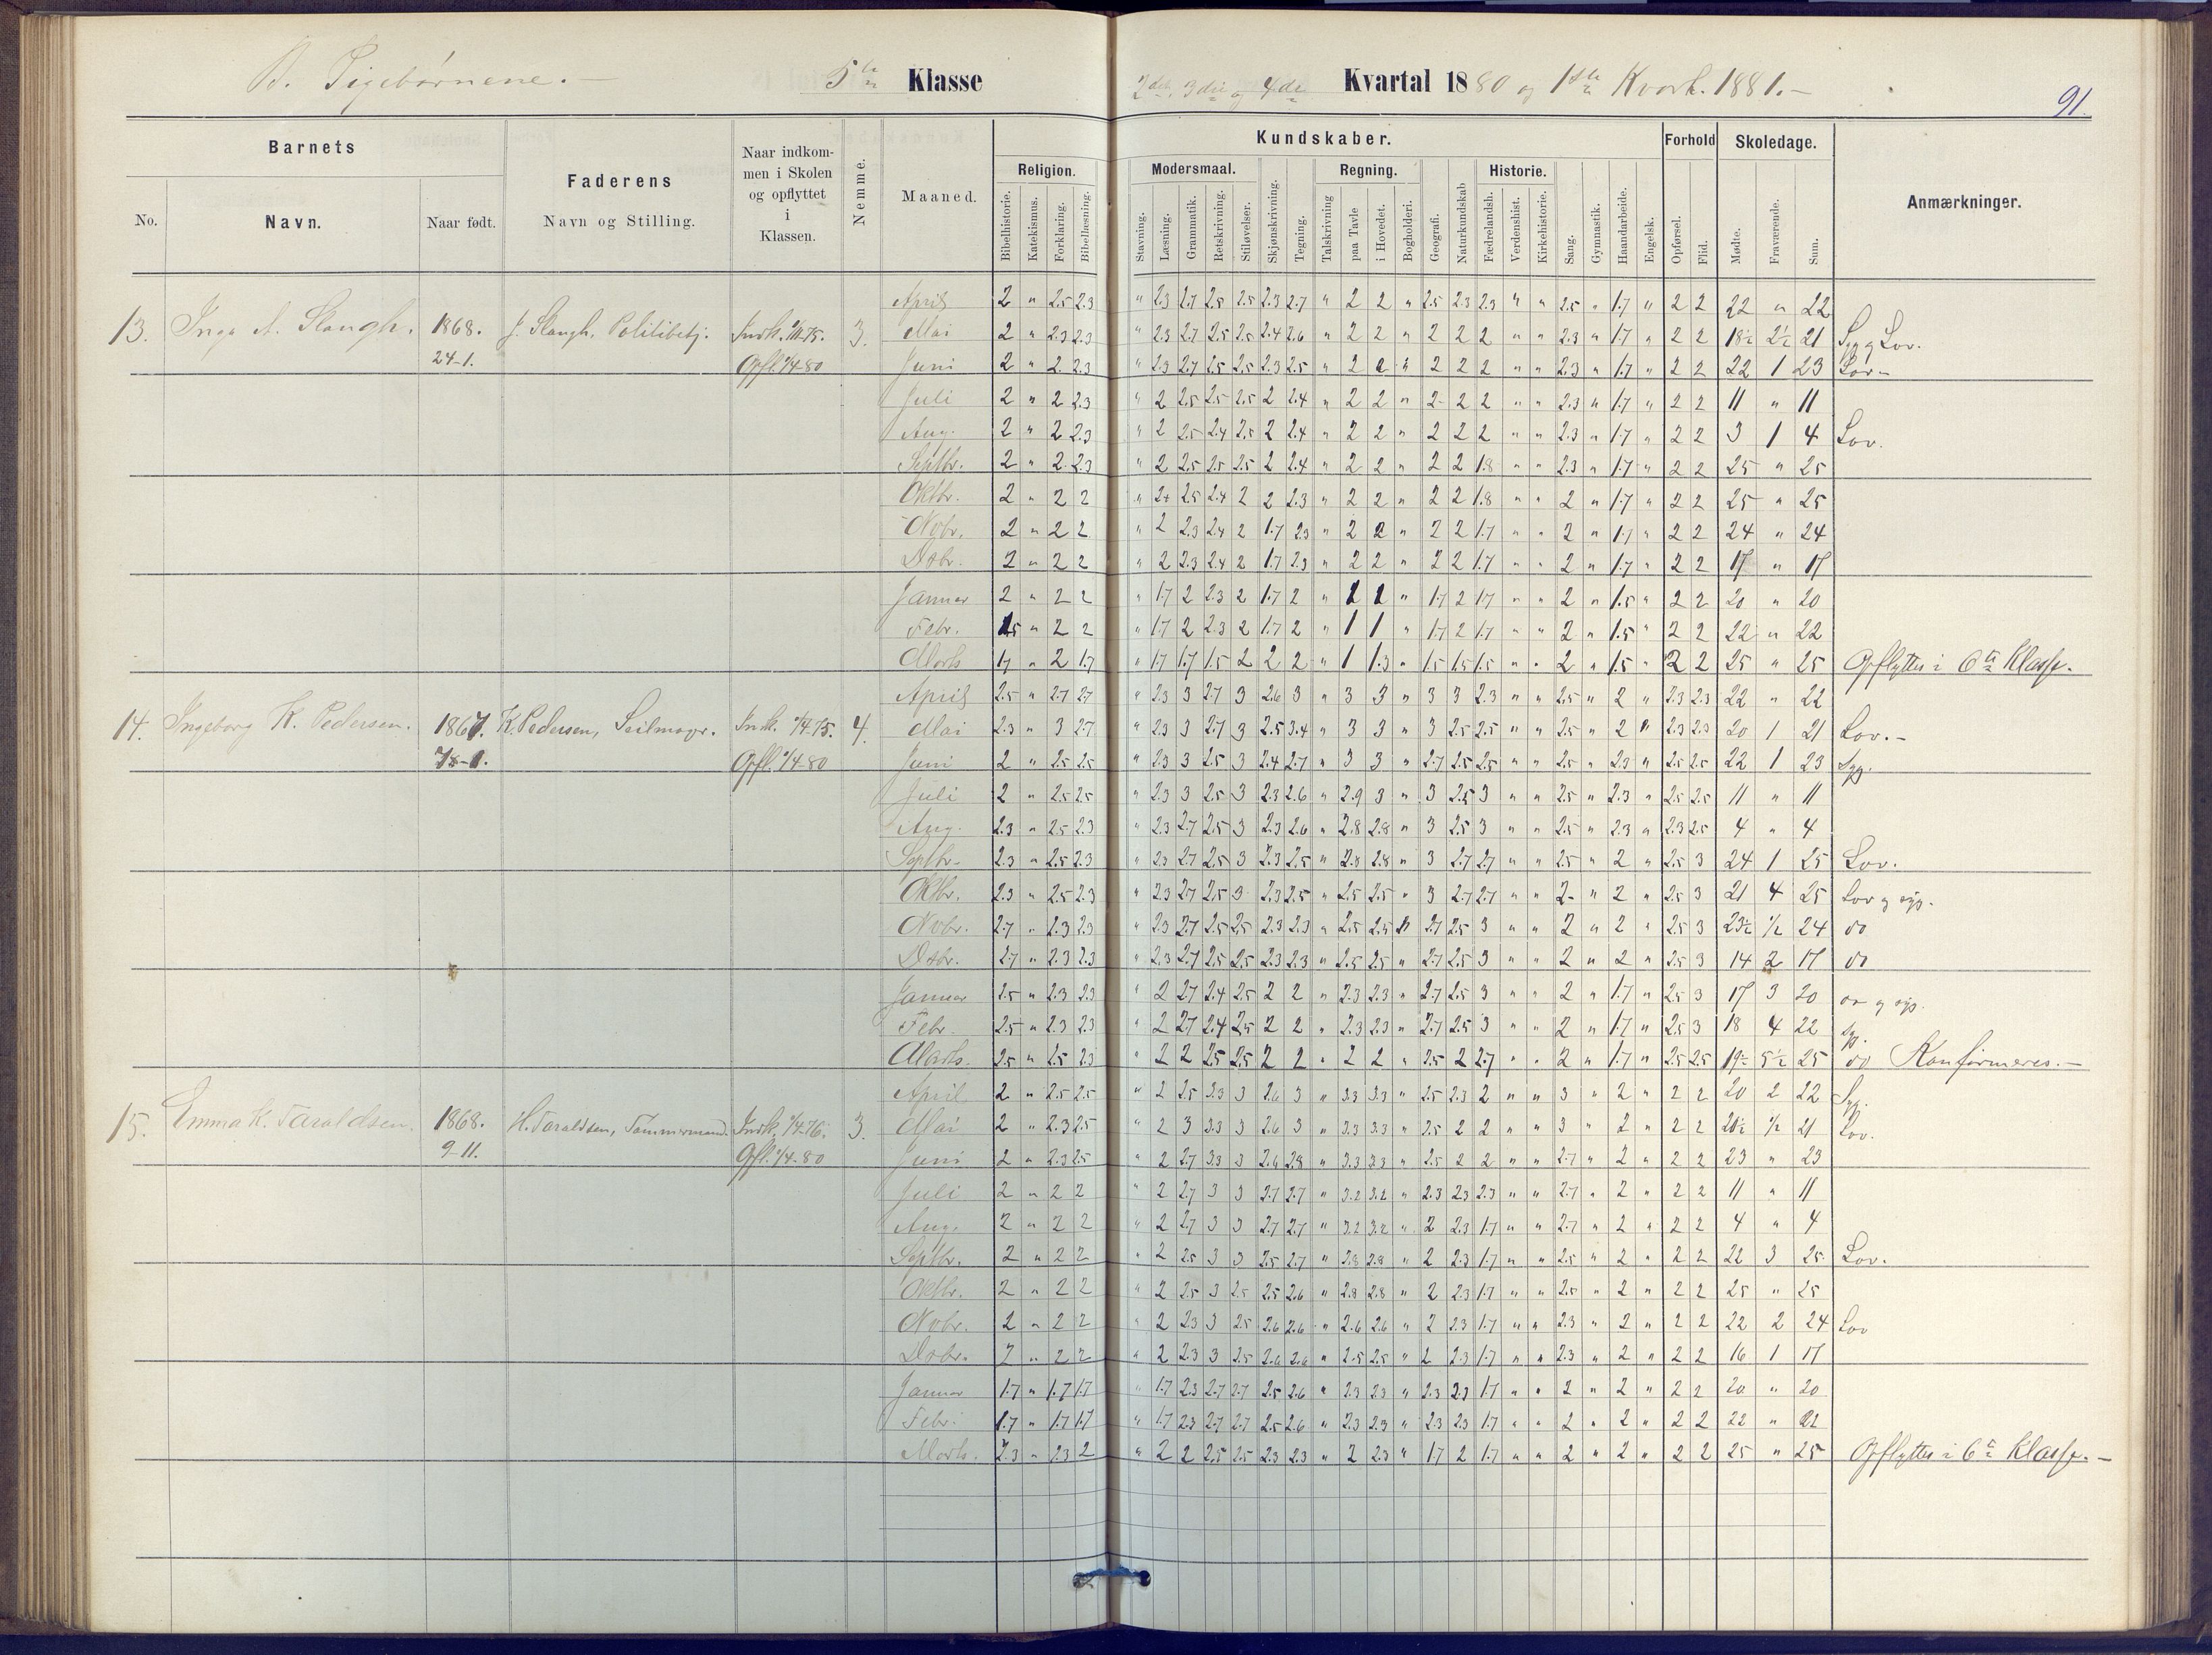 B. Pigebørnene. —
5te Klasse
2det, 3die og 4de Kvartal 1880 og 1ste Kvart. 1881. —
91.
Barnets
Faderens
Naar indkommen i Skolen og opflyttet i Klassen.
Nemme.
Maaned.
Kundskaber.
Forhold
Skoledage.
Anmærkninger.
No.
Navn.
Naar født.
Navn og Stilling.
Religion.
Modersmaal.
Regning.
Historie.
Bibelhistorie.
Katekismus.
Forklaring.
Bibellæsning.
Stavning.
Læsning.
Grammatik.
Retskrivning.
Stiløvelser.
Skjønskrivning.
Tegning.
Talskrivning
paa Tavle
i Hovedet.
Bogholderi.
Geografi.
Naturkundskab
Fædrelandsh.
Verdenshist.
Kirkehistorie.
Sang.
Gymnastik.
Haandarbeide.
Engelsk.
Opførsel.
Flid.
Mødte.
Fraværende.
Sum.
April 2 " 2.5 2.3 " 2.3 2.7 2.5 2.5 2.3 2.7 " 2 2 " 2.5 2.3 2.3 " " 2.5 " 1.7 " 2 2 22 " 22
13. Inga A. Slangh. 1868. J. Slangh, Politibetj. 3. Mai 2 " 2.3 2.3 " 2.3 2.7 2.5 2.5 2.4 2.6 " 2 2 " 2 2 2 " " 2.3 " 1.7 " 2 2 18½ 2½ 21 Syg og Lov.
24-1. Opfl. 1/4-80 Juni 2 " 2 2.3 " 2.3 2.7 2.5 2.5 2.3 2.5 " 2 2 " 2 2 2 " " 2.3 " 1.7 " 2 2 22 1 23 Lov –
Juli 2 " 2 2.3 " 2 2.5 2.5 2.5 2 2.4 " 2 2 " 2 2 2 " " 2.3 " 1.7 " 2 2 11 " 11
Aug. 2 " 2 2.3 " 2 2.5 2.4 2.5 2 2.4 " 2 2 " 2 2 2 " " 2.3 " 1.7 " 2 2 3 1 4 Lov.
Septbr. 2 " 2 2.3 " 2 2.5 2.5 2.5 2 2.4 " 2 2 " 2 2 1.8 " " 2.3 " 1.7 " 2 2 25 " 25
Oktbr. 2 " 2 2 " 2 2.5 2.4 2 2 2.3 " 2 2 " 2 2 1.8 " " 2 " 1.7 " 2 2 25 " 25
Novbr. 2 " 2 2 " 2 2.3 2.4 2 1.7 2.3 " 2 2 " 2 2 1.7 " " 2 " 1.7 " 2 2 24 " 24
Dcbr. 2 " 2 2 " 2 2.3 2.4 2 1.7 2.3 " 2 2 " 2 2 1.7 " " 2 " 1.7 " 2 2 17 " 17
Januar 2 " 2 2 " 1.7 2 2.3 2 1.7 2 " " 1.7 2 1.7 " " 2 " 1.5 " 2 2 20 " 20
Febr. 1.5 " 2 2 " 1.7 2 2.3 2 1.7 2 " 1 1 " 1.7 2 1.7 " " 2 " 1.5 " 2 2 22 " 22
Marts 1.7 " 2 1.7 " 1.7 1.7 1.5 2 2 2 " 1 1.3 " 1.5 1.5 1.5 " " 2 " 1.5 " 2 2 25 " 25 Opflyttes i 6te Klasse.
April 2.5 " 2.7 2.7 " 2.3 3 2.7 3 2.6 3 " 3 3 " 3 3 2.3 " " 2.5 " 2 " 2.3 2.3 22 " 22
14. Ingeborg K. Pedersen. 1867. K. Pedersen, Seilmagr. Indk. 1/4-75. 4. Mai 2.3 " 3 2.7 " 2.3 3 2.7 3 2.5 3.4 " 3 3 " 3 2.5 2.5 " " 2.5 " 2 " 2.3 2.3 20 1 21 Lov. –
Opfl. 1/4-80 Juni 2 " 2.5 2.5 " 2.3 3 2.5 3 2.4 2.7 " 3 3 " 2.7 2.5 2.5 " " 2.5 " 2.3 " 2.5 2.5 22 1 23 Syg.
Juli 2 " 2.5 2.5 " 2.3 3 2.5 3 2.3 2.6 " 2.9 3 " 3 2.5 3 " " 2.5 " 2.3 " 2.5 2.5 11 " 11
Aug. 2.3 " 2.5 2.3 " 2.3 2.7 2.5 3 2.3 2.6 " 2.8 2.8 " 3 2.5 3 " " 2.5 " 2.3 " 2.3 2.5 4 " 4
Septbr. 2.3 " 2.5 2.3 " 2.3 2.7 2.5 3 2.3 2.5 " 2.8 2.8 " 3 2.7 2.7 " " 2.5 " 2 " 2.5 3 24 1 25 Lov.
Oktbr. 2.3 " 2.5 2.3 " 2.3 2.7 2.5 3 2.3 2.5 " 2.5 2.5 " 3 2.7 2.7 " " 2 " 2 " 2.5 3 21 4 25 Lov og syg.
Novbr. 2.7 " 2.3 2.3 " 2.3 2.7 2.5 2.5 2.3 2.3 " 2.5 2.5 " 2.7 2.5 3 " " 2 " 2 " 2.5 3 23½ ½ 24 do
Dcbr. 2.7 " 2.3 2.3 " 2.3 2.7 2.5 2.5 2.3 2.3 " 2.5 2.5 " 2.7 2.5 3 " " 2 " 2 " 2.5 3 14 2 17 do
Januar 2.5 " 2.3 2.3 " 2 2.7 2.4 2.5 2 2 " 2.3 2.3 " 2.7 2.5 3 " " 2 " 1.7 " 2.5 3 17 3 20 do og syg.
Febr. 2.5 " 2.3 2.3 " 2 2.7 2.4 2.5 2 2 " 2.3 2.3 " 2.7 2.5 3 " " 2 " 1.7 " 2.5 3 18 4 22 syg.
Marts. 2.5 " 2.5 2.3 " 2 2 2.5 2.5 2 2 " 2 2 " 2.5 2 2.7 " " 2 " 1.7 " 2.5 2.5 19½ 5½ 25 do Konfirmeres. —
April 2 " 2.5 2.5 " 2 2.5 3.3 3 2.6 3 " 3.3 3.3 " 2.5 2.3 2 " " 3 " 2 " 2 2 20 2 22 Syg.
15. Emma K. Taraldsen. 1868. H. Taraldsen, Tømmermand. Indk. 1/4-76. 3. Mai 2 " 2.3 2.5 " 2 3 3.3 3 2.6 3 " 3.3 3.3 " 2.5 2 2 " " 3 " 2 " 2 2 20½ ½ 21 Lov.
9-11. Opfl. 1/4-80 Juni 2 " 2.3 2.5 " 2 2.7 3.3 3 2.6 2.8 " 3.3 3.3 " 2.5 2 2 " " 2.7 " 2 " 2 2 23 " 23
Juli 2 " 2 2 " 2 2.7 3 3 2.7 2.7 " 3.2 3.2 " 2.3 2.3 2.3 " " 2.7 " 2 " 2 2 11 " 11
Aug. 2 " 2 2 " 2 2.7 3 3 2.7 2.7 " 3.2 3.2 " 2 2.3 1.7 " " 2.7 " 2 " 2 2 4 " 4
Septbr. 2 " 2 2 " 2 2.5 3 3 2.5 2.7 " 2.8 2.8 " 2 2.3 1.7 " " 2.5 " 2 " 2 2 22 3 25 Lov.
Oktbr. 2 " 2 2 " 2 2.5 3 2.5 2.5 2.6 " 2.8 2.8 " 2 2.3 1.7 " " 2.5 " 2 " 2 2 25 " 25
Novbr. 2 " 2 2 " 2 2.3 3 2.5 2.6 2.6 " 2.6 2.6 " 2 2.3 1.7 " " 2.3 " 2 " 2 2 22 2 24 Lov
Dcbr. 2 " 2 2 " 2 2.3 3 2.5 2.6 2.6 " 2.5 2.5 " 2 2.3 1.7 " " 2.3 " 2 " 2 2 16 1 17
Januar 1.7 " 1.7 1.7 " 1.7 2.3 2.7 2.7 2.5 2.6 " 2.3 2.3 " 2.3 2.3 1.7 " " 2 " 2 " 2 2 20 " 20
Febr. 1.7 " 1.7 1.7 " 1.7 2.3 2.7 2.7 2.5 2.6 " 2.3 2.3 " 2.3 2.3 1.7 " " 2 " 2 " 2 2 22 " 22
Marts. 2.3 " 2.3 2 " 2 2 2.5 2.5 2.3 2.3 " 2 2.3 " 1.7 2 1.7 " " 2 " 2 " 2 2 25 " 25 Opflyttes i 6te Klasse. —